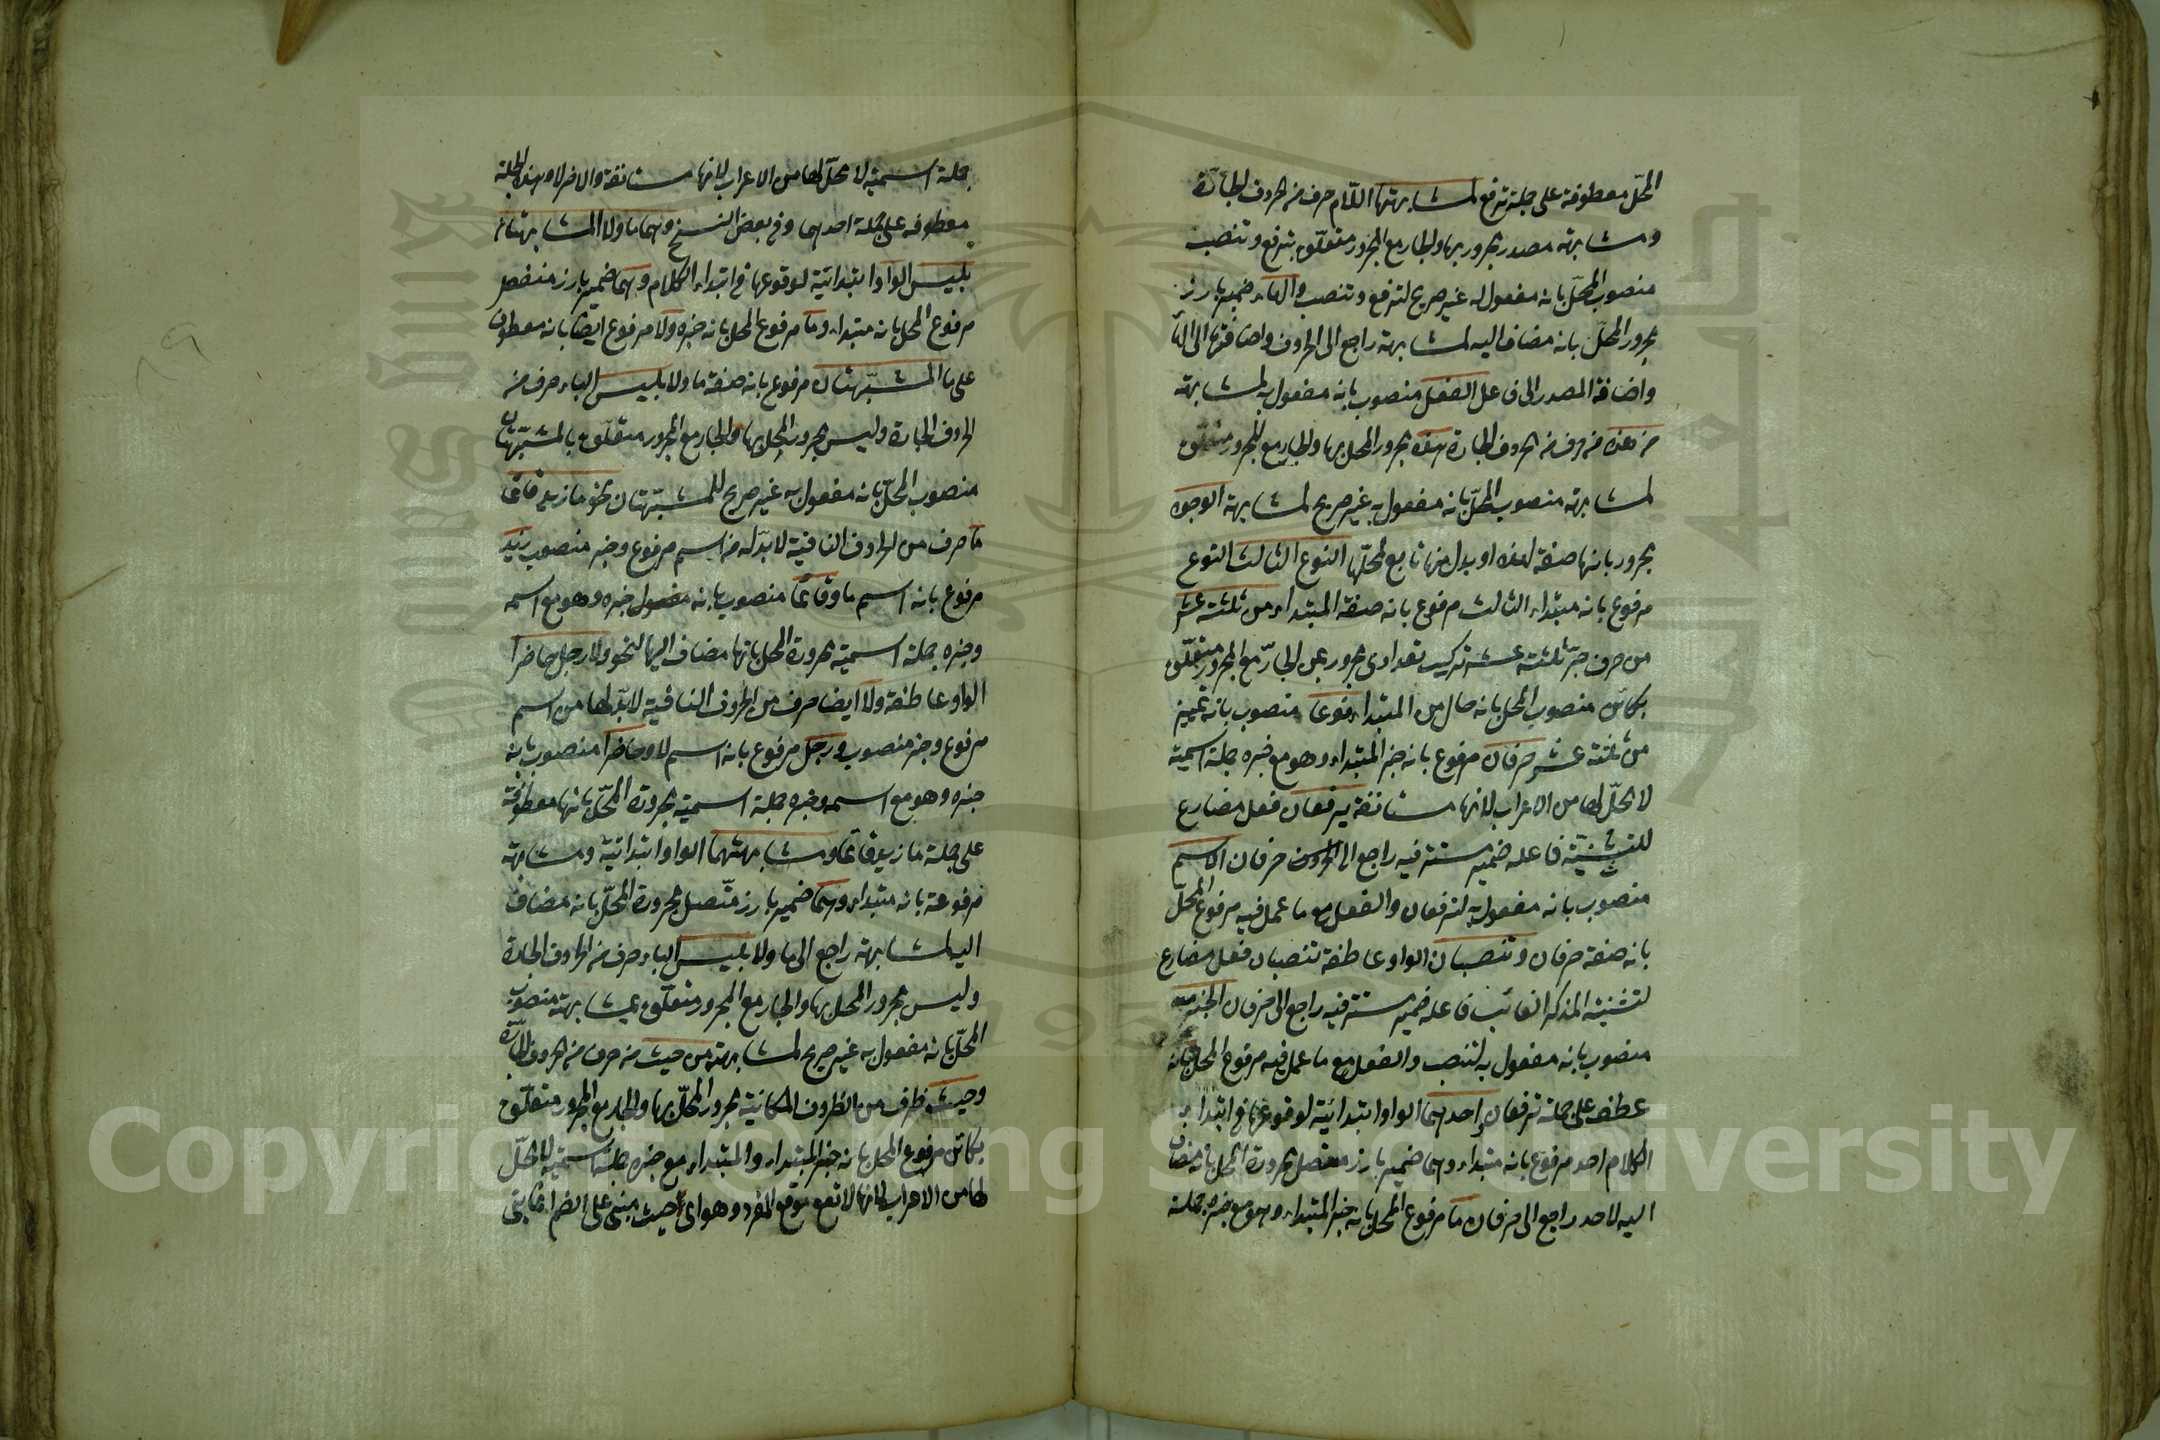 المحل معطوفة على جملة ترفع لمشابهتها اللام حرف من الحروف الجارة
ومشابهة مصدر مجرور بها والجار مع المجرور متعلق بترفع وتنصب
منصوب المحل بانه مفعول له غير صريح لترفع وتنصب والهاء ضمير بارز
مجرور المحل بانه مضاف اليه لمشابهة راجع الى الحروف واضافتها الى الهاء
واضافة المصدر الى فاعل الفعل منصوب بانه مفعول به لمشابهة
من هذه من حرف من الحروف الجارة هذه مجرور المحل بها والجار مع المجرور متعلق
لمشابهة منصوب المحل بانه مفعول به غير صريح لمشابهة الوجوه
مجرور بانها صفة لهذه او بدل منها تابع لمحلها النوع الثالث النوع
مرفوع بانه مبتداء الثالث مرفوع بانه صفة المبتداء من ثلثة عشر
من حرف جر ثلثة عشر تركيب تعدادى مجرور بمن الجار مع المجرور متعلق
بكائن منصوب المحل بانه حال من المبتداء نوعا منصوب بانه تمييز
من ثلثة عشر حرفان مرفوع بانه خبر المبتداء وهو مع خبره جملة اسمية
لا محل لها من الاعراب لانها مستانفة يرفعان فعل مضارع
للتثنية فاعله ضمير مستتر فيه راجع الى حرفان الاسم
منصوب بانه مفعول به لترفعان والفعل مع ما عمل فيه مرفوع المحل
بانه صفة حرفان وتنصبان الواو عاطفة تنصبان فعل مضارع
لتثنية المذكر الغائب فاعله ضمير مستتر فيه راجع الى حرفان الخبر
منصوب بانه مفعول به لتنصب والفعل مع ما عمل فيه مرفوع المحل بانه
عطف على جملة ترفعان احدهما الواو ابتدائية لوقوعها فى ابتداء
الكلام احد مرفوع بانه مبتداء وهما ضمير بارز متصل مجرورة المحل بانه مضاف
اليه لاحد راجع الى حرفان ما مرفوع المحل بانه خبر المبتداء وهو مع خبره جملة
جملة اسمية لا محل لها من الاعراب لانها مستانفة والاخر لا وهذه الجملة
معطوفة على جملة احدهما وفى بعض النسخ وهما ما ولا المشابهتان
بليس الواو ابتدائية لوقوعها فى ابتداء الكلام وهما ضمير بارز منفصل
مرفوع المحل بانه مبتداء وما مرفوع المحل بانه خبره ولا مرفوع ايضا بانه معطوف
على ما المشبهتان مرفوع بانه صفة ما ولا بليس الباء حرف من
الحروف الجارة وليس مجرور المحل بها والجار مع المجرور متعلق بالمشبهتان
منصوب المحل بانه مفعول به غير صريح للمشبهتان نحو ما زيد قائما
ما حرف من الحروف النافية لا بد له من اسم مرفوع وخبر منصوب زيد
مرفوع بانه اسم ما وقائما منصوب بانه خبره وهو مع اسمه
وخبره جملة اسمية مجرورة المحل بانها مضاف اليها لنحو ولا رجل حاضرا
الواو عاطفة ولا ايضا حرف من الحروف النافية لا بد لها من اسم
مرفوع وخبر منصوب ورجل مرفوع بانه اسم لا وحاضرا منصوب بانه
خبره وهو مع اسمه وخبره جملة اسمية مجرورة المحل بانها معطوفة
على جملة ما زيد قائما ومشابهتهما الواو ابتدائية ومشابهة
مرفوعة بانه مبتداء وهما ضمير بارز متصل مجرورة المحل بانه مضاف
اليه لمشابهة راجع الى ما ولا بليس الباء حرف من الحروف الجارة
وليس مجرور المحل بها والجار مع المجرور متعلق بمشابهة منصوب
المحل بانه مفعول به غير صريح لمشابهة من حيث من حرف من الحروف الجارة
وحيث ظرف من الظروف المكانية مجرور المحل بها والجار مع المجرور متعلق
بكائن مرفوع المحل بانه خبر المبتداء والمبتداء مع خبره جملة اسمية لا محل
لها من الاعراب لانها لا تقع موقع المفرد وهو اى حيث مبنى على الضم
Copyright © King Saud University
1957